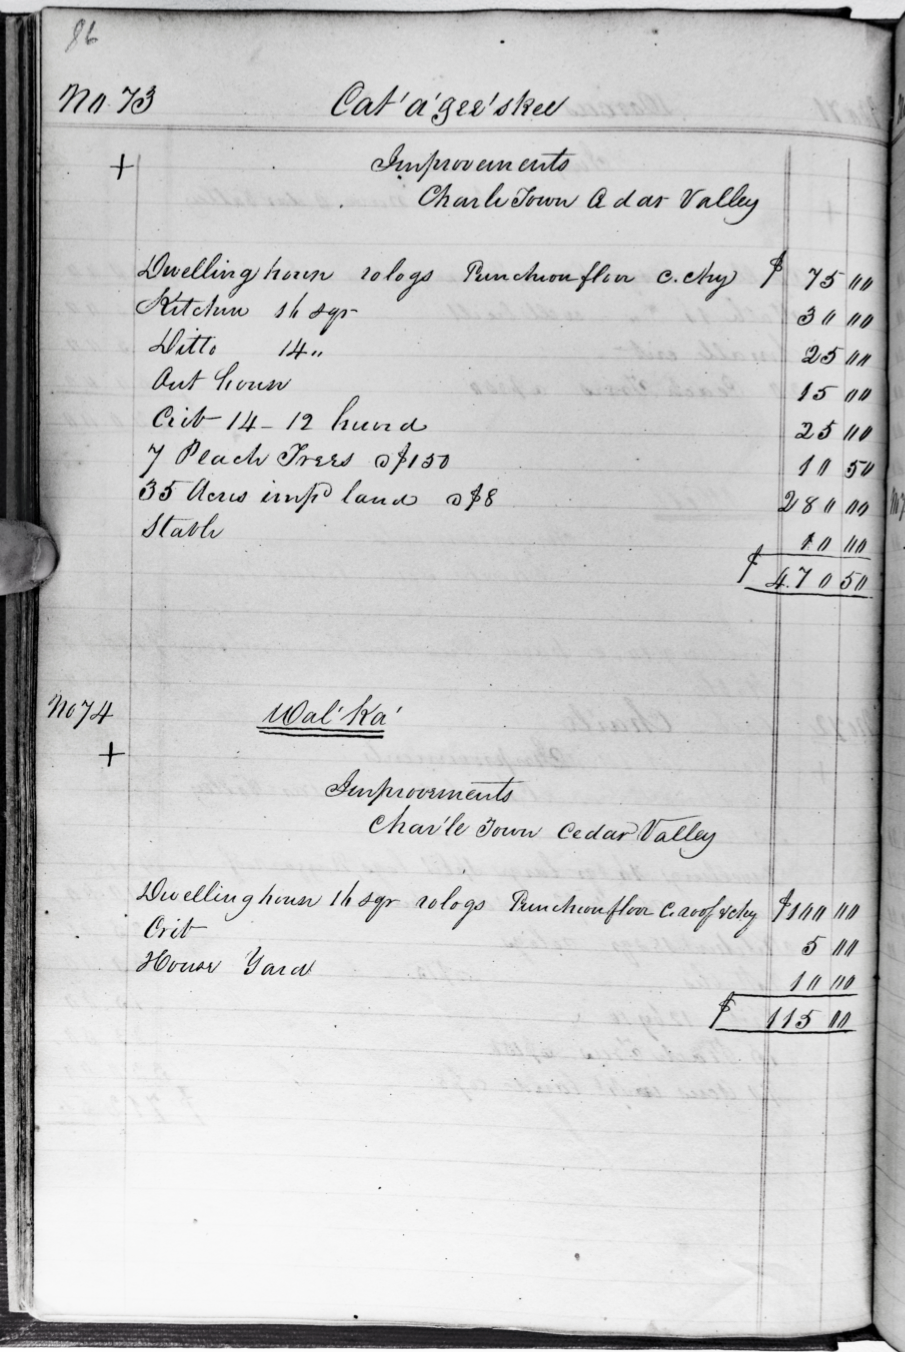 86
No 73 Cat'a'gee'skee
+ Improvements
Charle Town Cedar Valley
Dwelling house rologs Puncheon floor C. Chy $ 75 00
Kitchen 16 sqr 30 00
Ditto 14 " 25 00
Out house 15 00
Crib 14 - 12 hewed 25 00
7 Peach Trees @ $150 10 50
35 Acres imp'd land @ $8 280 00
Stable 10 00
$ 470 50
No 74 Wal'ka'
+
Improvements
Char'le Town Cedar Valley
Dwelling house 16 sqr rologs Puncheon floor C. roof & chy $100 00
Crib 5 00
House Yard 10 00
$ 115 00